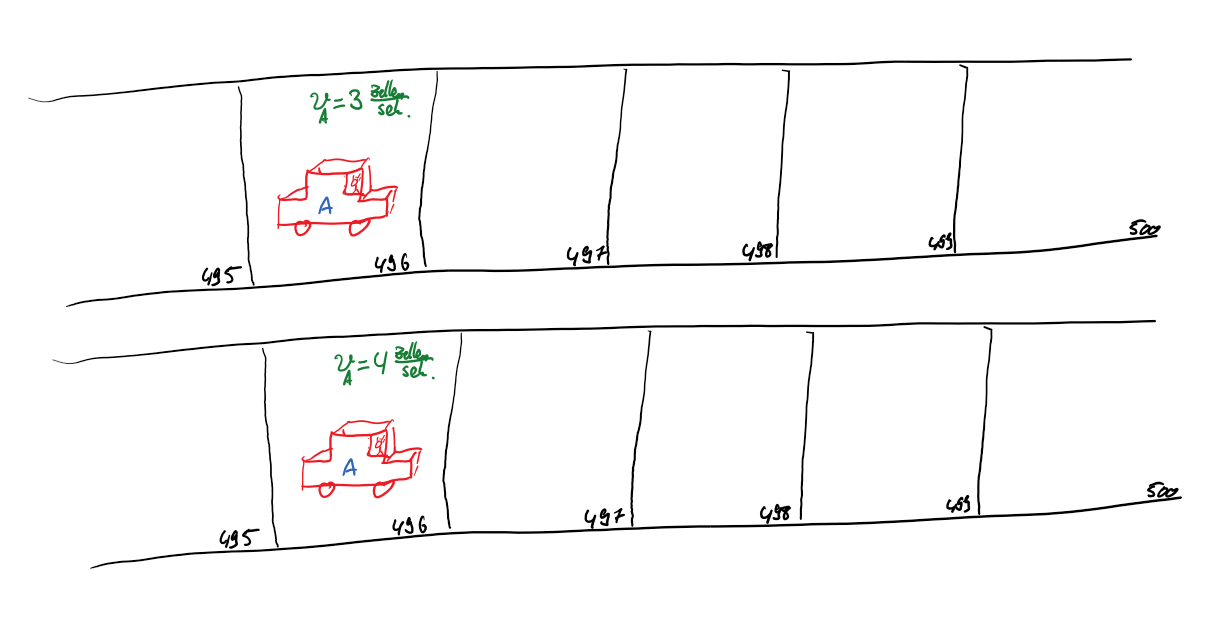 v_A = 3 Zellen/sek.
A
495 496 497 498 499 500
v_A = 4 Zellen/sek.
A
495 496 497 498 499 500